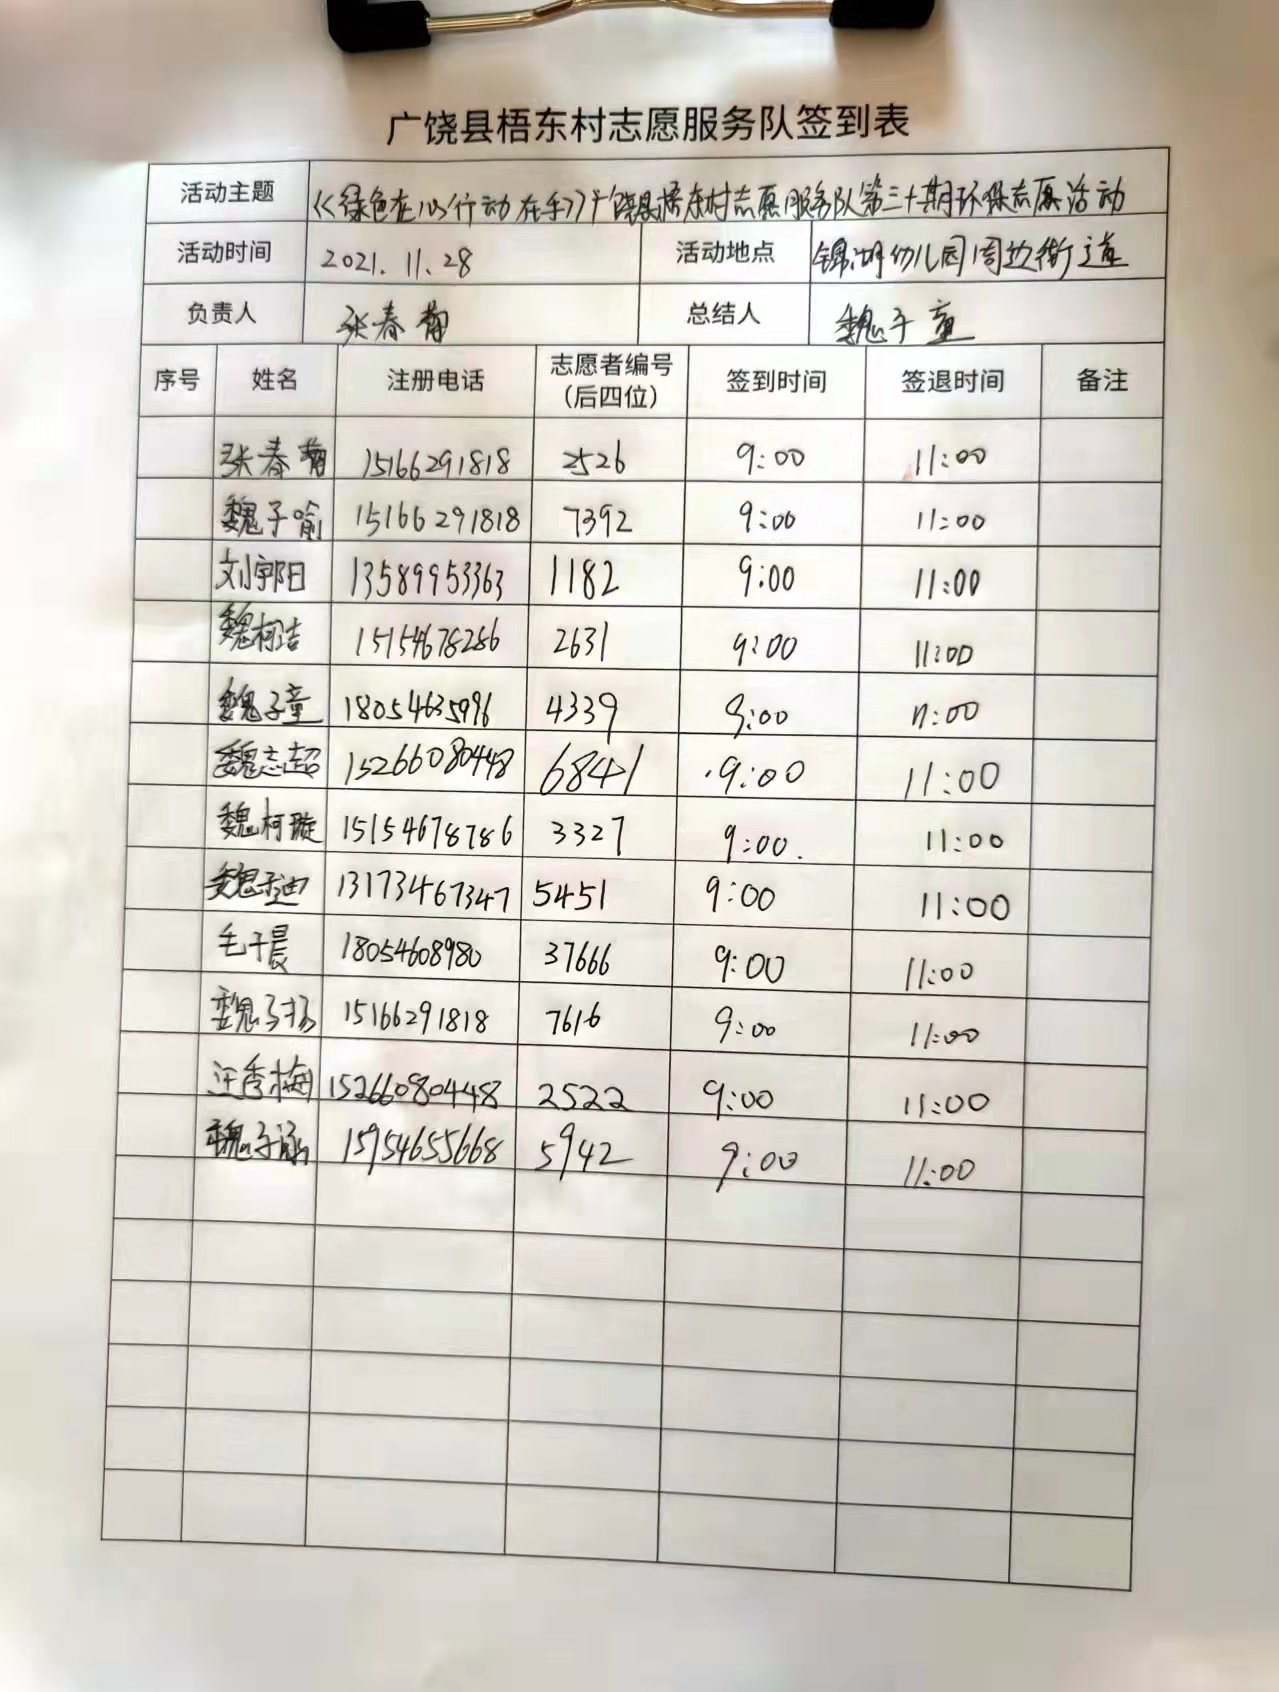 广饶县梧东村志愿服务队签到表
活动主题 《绿色在心行动在手》广饶县梧东村志愿服务队第三十期环保志愿活动
活动时间 2021.11.28 活动地点 锦湖幼儿园周边街道
负责人 张春菊 总结人 魏子童
序号 姓名 注册电话 志愿者编号（后四位） 签到时间 签退时间 备注
张春菊 15166291818 2526 9:00 11:00
魏子喻 15166291818 7392 9:00 11:00
刘宇阳 13589953363 1182 9:00 11:00
魏柯洁 15154678286 2631 9:00 11:00
魏子童 18054635996 4339 9:00 11:00
魏志超 15266080448 6841 9:00 11:00
魏柯璇 15154678786 3327 9:00. 11:00
魏子迪 13173467347 5451 9:00 11:00
毛千晨 18054608980 37666 9:00 11:00
魏子扬 15166291818 7616 9:00 11:00
汪秀梅 15266080448 2522 9:00 11:00
魏子涵 15954655668 5942 9:00 11:00